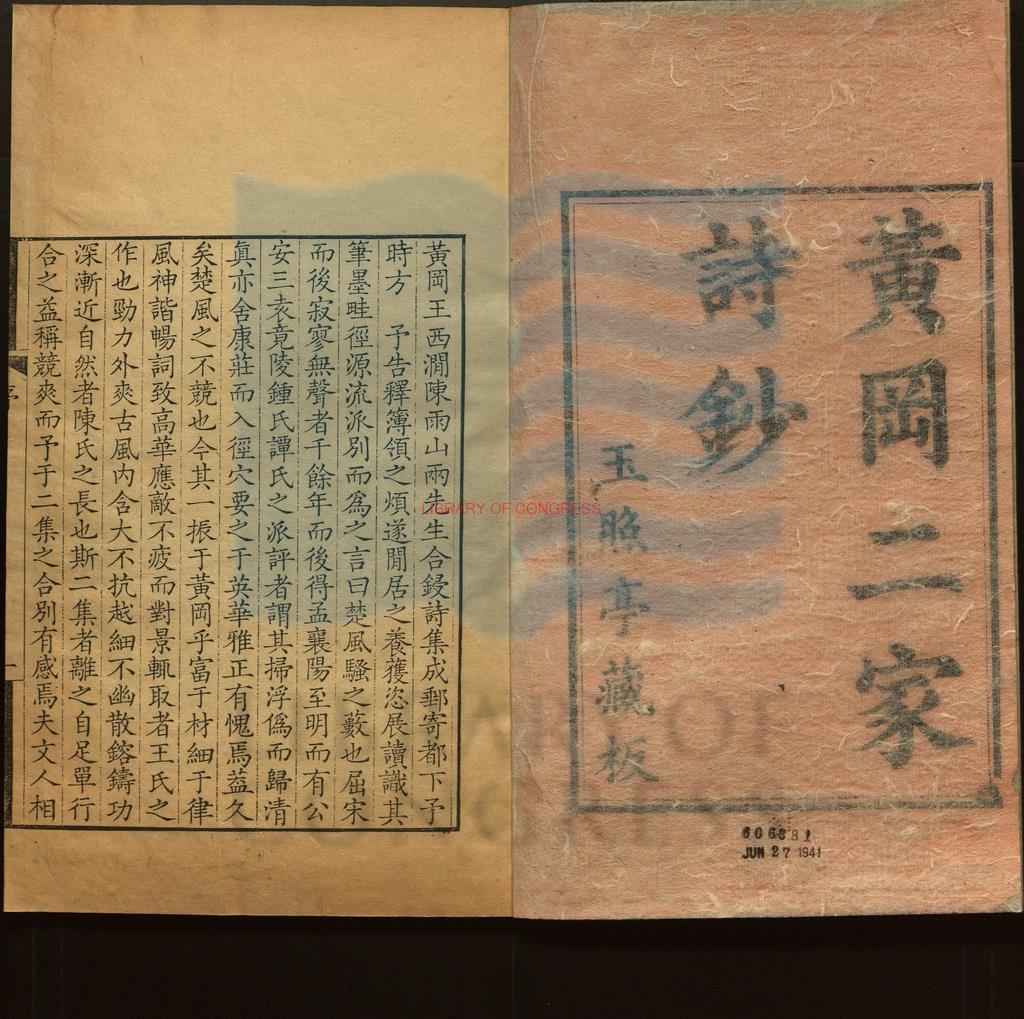 黃岡二家
詩鈔
玉照亭藏板
606381
JUN 27 1941
LIBRARY OF CONGRESS
黃岡王西澗陳雨山兩先生合錽詩集成郵寄都下予
時方　予告釋簿領之煩遂閒居之養獲恣展讀識其
筆墨畦徑源流派別而爲之言曰楚風騷之藪也屈宋
而後寂寥無聲者千餘年而後得孟襄陽至明而有公
安三袁竟陵鍾氏譚氏之派評者謂其掃浮僞而歸清
眞亦舍康莊而入徑穴要之于英華雅正有愧焉葢久
矣楚風之不競也今其一振于黃岡乎富于材細于律
風神諧暢詞致高華應敵不疲而對景輒取者王氏之
作也勁力外爽古風內含大不抗越細不幽散鎔鑄功
深漸近自然者陳氏之長也斯二集者離之自足單行
合之益稱競爽而予于二集之合別有感焉夫文人相
序
一